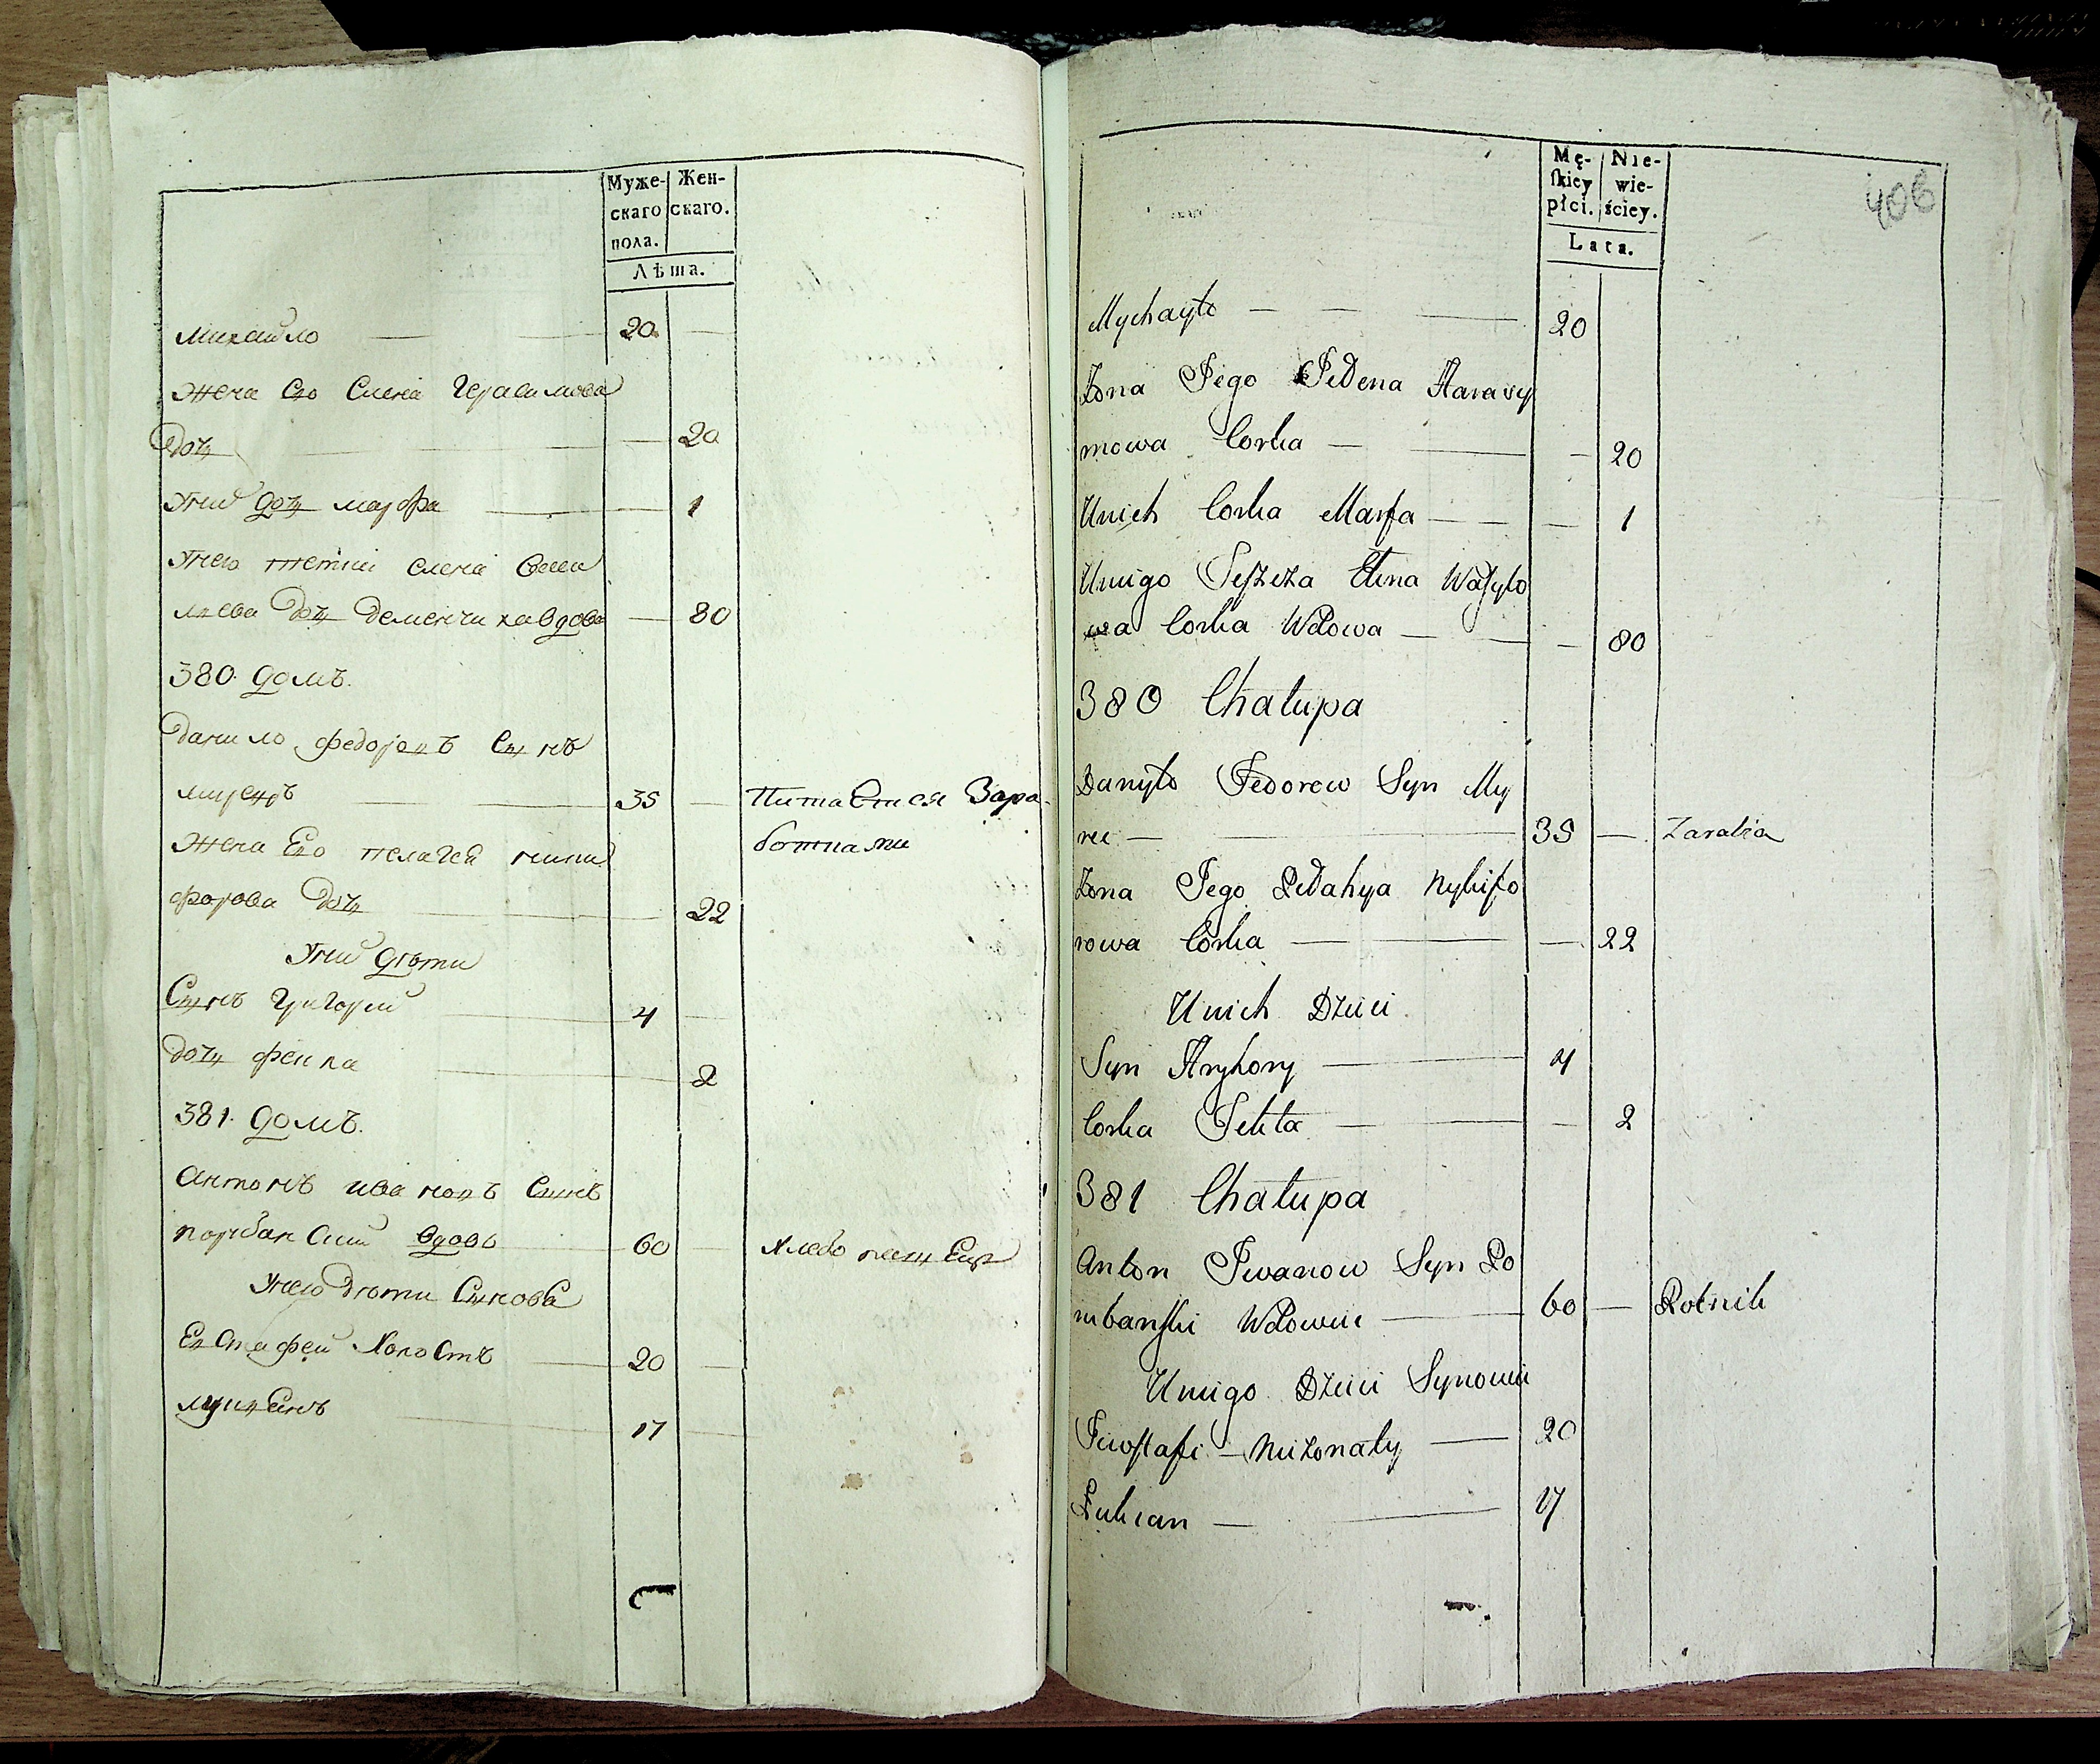 Муже-
скаго
пола.
Жен-
скаго.
Лѣта.
Михайло 20
жена Его Елена Герасимова
дочь 20
Унив дочь марфа 1
Унего тетка елена Васи
лиева дочь деменчиха вдова 80
380. домъ.
данило федоровъ Сынъ
миренъ 35 Питается Зара
жена Его пелагея ники
ботками
форова дочь 22
Унив дѣти
Сынъ Григорий 4
дочь фекла 2
381. домъ.
Антонъ ивановъ Сынъ
порубанский вдовъ 60 Хлебопашецъ
Унего дѣти Синове
Евстафей Холостъ 20
лукиянъ 17
406
Mę-
ſkiey
płci.
Nie-
wie-
ściey.
Lata.
Mychayło 20
Żona Jego Jełena Harasy
mowa Corka 20
Unich Corka Marfa 1
Uniego Ciotka Elena Wasylo
wa Corka Wdowa 80
380 Chałupa
Danyło Fedorow Syn My
ren 35 Zarabia
Żona Jego Pełahya Nykifo
rowa Corka 22
Unich Dzieci
Syn Hryhory 4
Corka Fekła 2
381 Chałupa
Anton Iwanow Syn Po
rubanſki Wdowiec 60 Rolnik
Uniego Dzieci Synowie
Jewſtafi Nieżonaty 20
Łukian 17